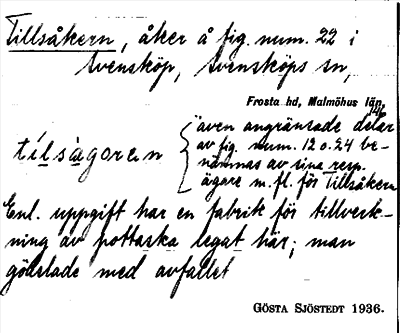 Tillsåkern, åker å fig. num. 22 i
Svensköp, Svensköps sn,
Frosta hd, Malmöhus län,
tilságoren
även angränsade delar
av fig. num. 12 o. 24 be-
nämnas av sina resp.
ägare m. fl. för Tillsåkern
Enl. uppgift har en fabrik för tillverk-
ning av pottaska legat här; man
gödslade med avfallet
GÖSTA SJÖSTEDT 1936.